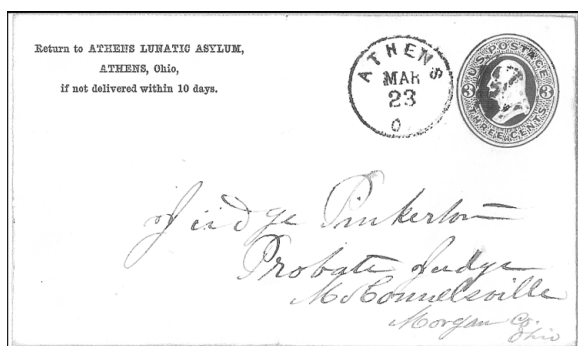 Return to ATHENS LUNATIC ASYLUM,
ATHENS, Ohio,
if not delivered within 10 days.
ATHENS
MAR
23
O
U.S. POSTAGE
3 3
THREE CENTS
Judge Pinkerton
Probate Judge
McConnelsville
Morgan Co.
Ohio